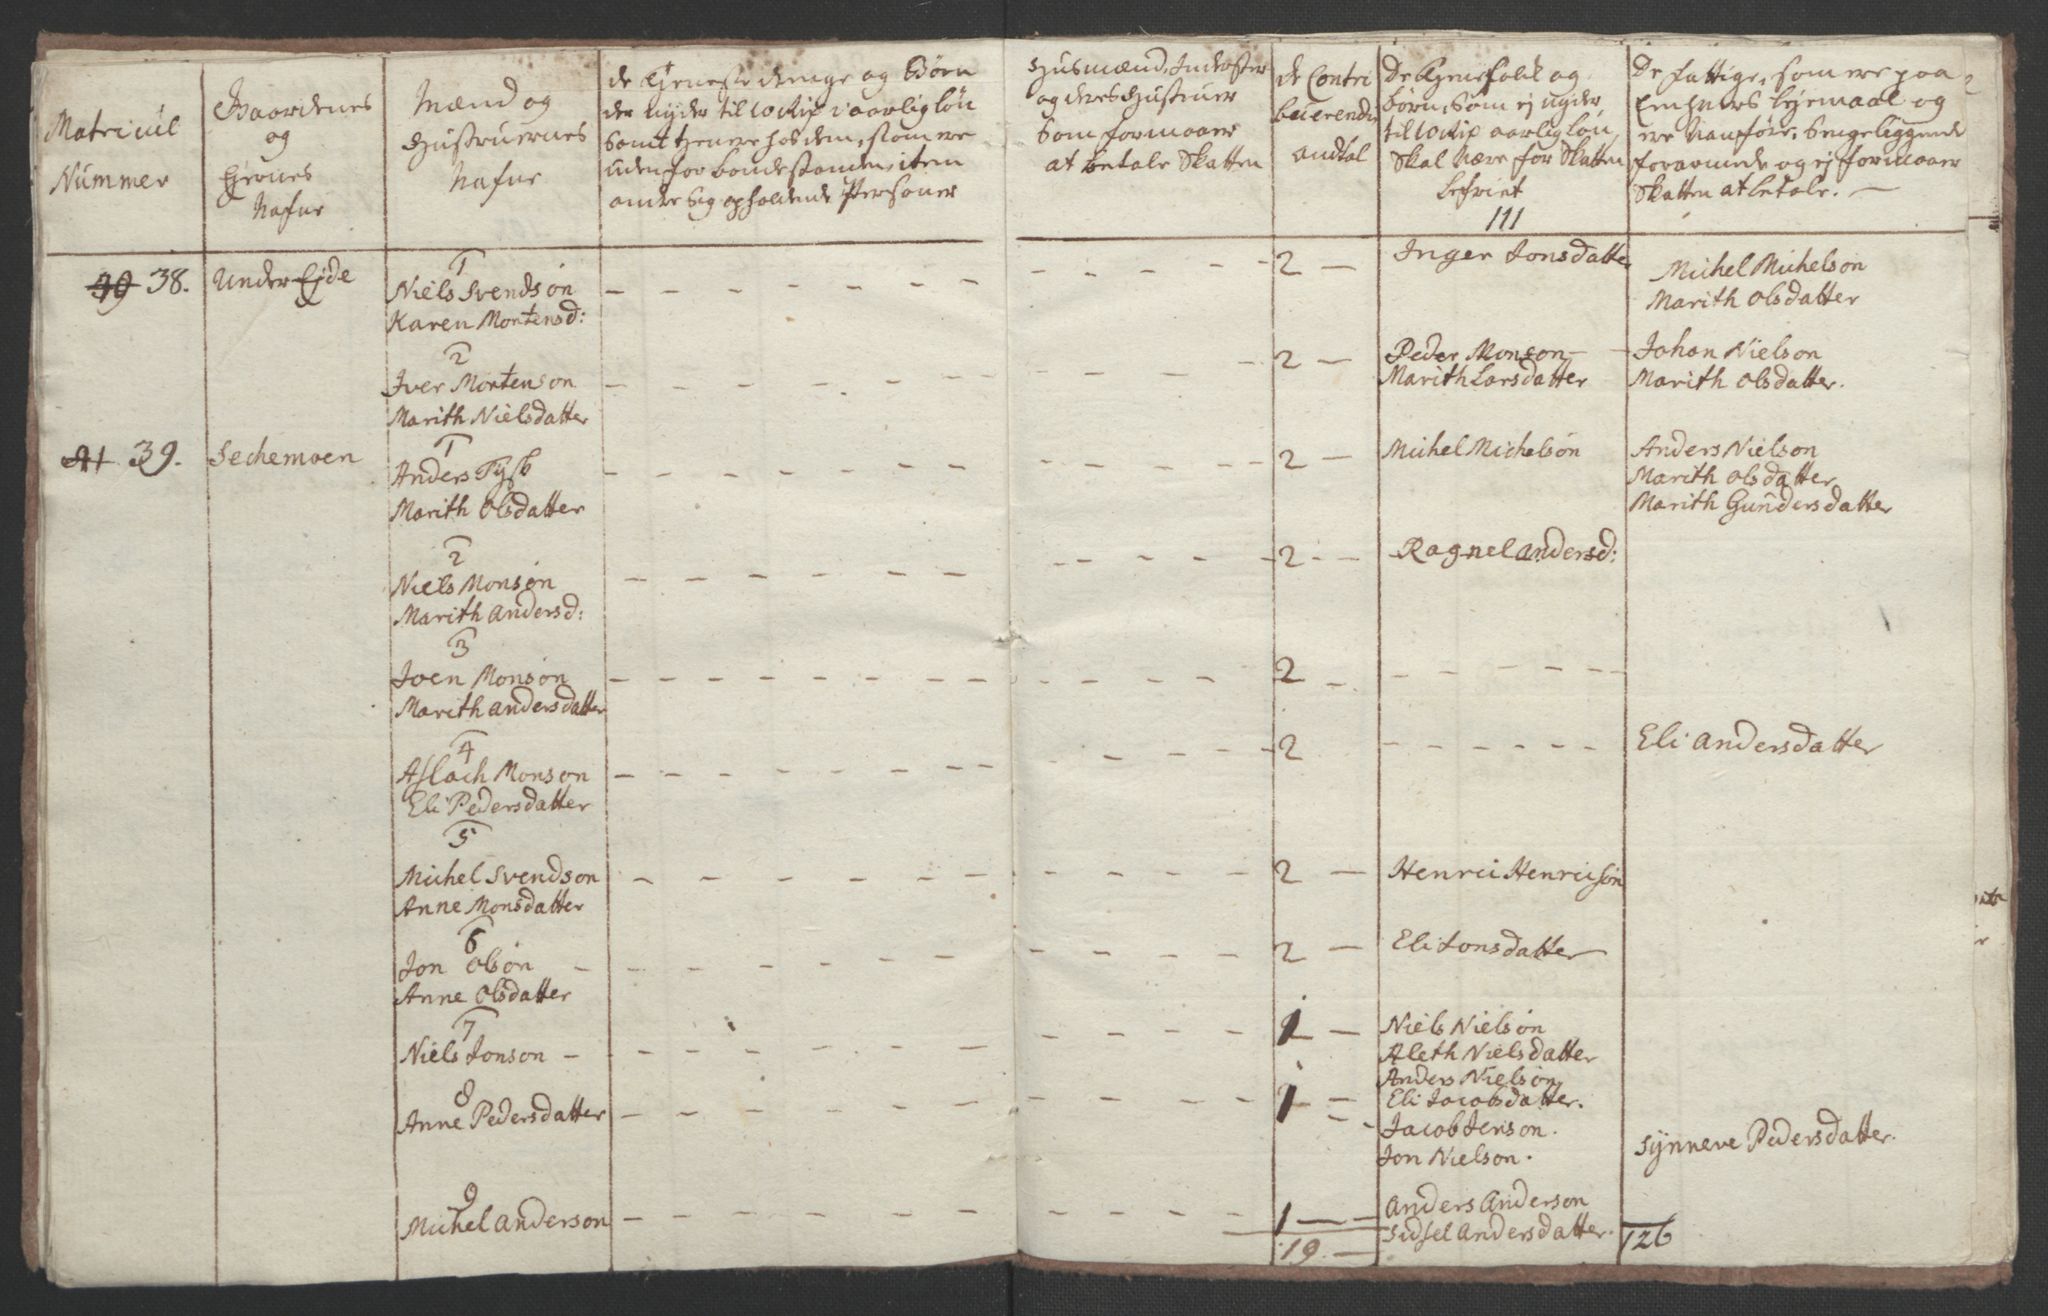 Matricul
Nummer
Gaardenes
og
Ejernes
Nafne
Mænd og
Hustruernes
Nafne
de Tjeneste drenge og Börn
der nyder til 10 Rixd aarlig lön
samt tienere hos dem, som ere
uden for bondestanden, item
andre sig opholdende Personer
Husmænd, Inderster
og deres Hustruer
som formaaer
at betale Skatten
de Contri
buerendes
andtal
De Tjenefolk og
börn, som ej nyder
til 10 Rixd aarlig lön,
Skal være for Skatten
befriet
111
De fattige, som ere paa
Lemhners lejemaal og
ere Vanföre, Sengeliggende
forarmede og ej formaaer
Skatten at betale. —
39 38.
Under Ejde
1
Niels Svendsön
Karen Mortensd:
2 —
Inger Jonsdatter
Michel Michelsön
Marith Olsdatter
2
Iver Mortenson
Marith Nielsdatter
2 —
Peder Monson —
Marith Larsdatter
Johan Nielson
Marith Olsdatter.
41 39.
Sechemoen
1
Anders Tysk
Marith Olsdatter
2 —
Michel Michelsön
Anders Nielson
Marith Olsdatter
Marith Gundersdatter
2
Niels Monsön
Marith Andersd:
2 —
Ragnel Andersd:
3
Joen Monsön
Marith Andersdatter
2 —
4
Aslach Monson
Eli Pedersdatter
2
Eli Andersdatter
5
Michel Svendson
Anne Monsdatter
2 —
Henric Henricsön
6
Jon Olsön
Anne Olsdatter
2 —
Eli Jonsdatter
7
Niels Jonson —
1 —
Niels Nielsön
Aleth Nielsdatter
Anders Nielsön
8
Anne Pedersdatter
1 —
Eli Jacobsdatter.
Jacob Jenson.
Jon Nielson.
Synneve Pedersdatter.
9
Michel Anderson
1 —
Anders Anderson
Sidsel Andersdatter.
19. —
126